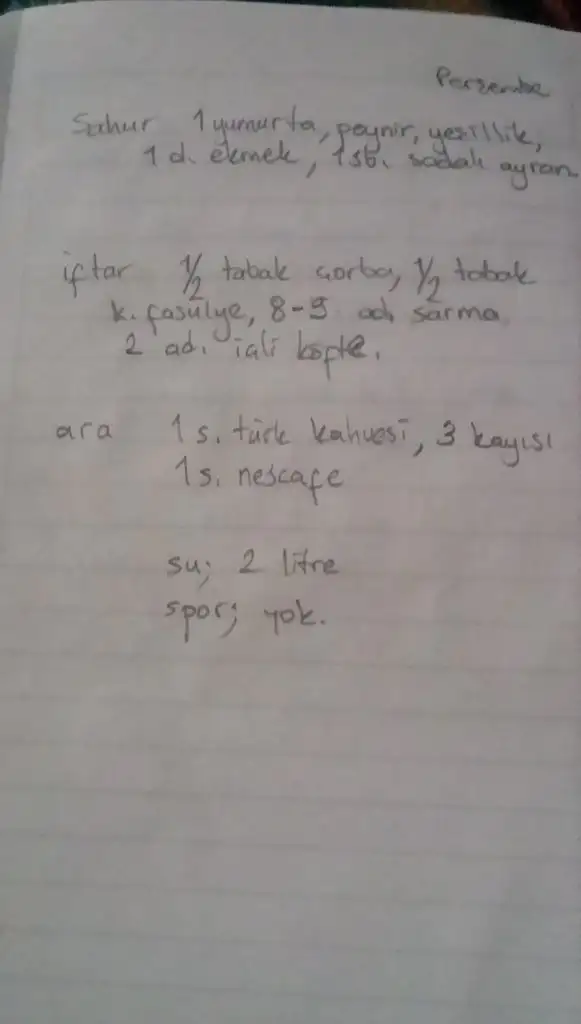 Perşembe
Sahur 1 yumurta, peynir, yeşillik,
1 d. ekmek, 1 sb. sodalı ayran
iftar 1/2 tabak çorba, 1/2 tabak
k. fasülye, 8-9 ad. sarma
2 ad. içli köfte.
ara 1 s. türk kahvesi, 3 kayısı
1 s. nescafe
su; 2 litre
spor; yok.